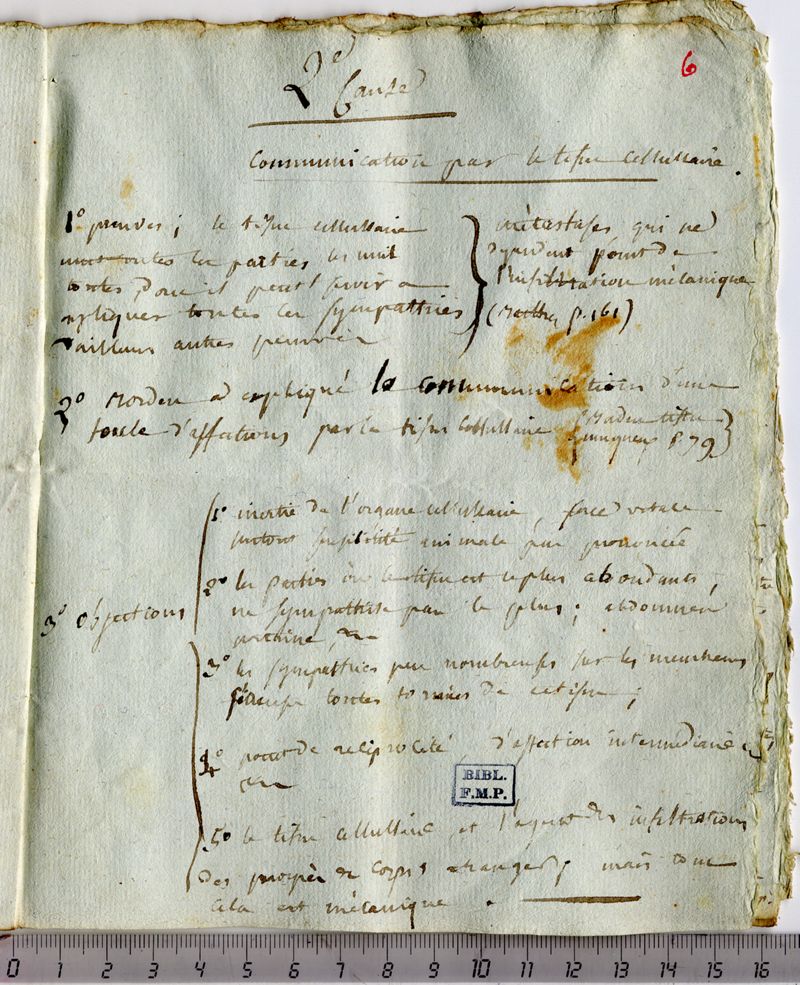 6
2e
Cause
Communication par le tissu cellullaire.
1° preuves ; le tissu cellullaire
toutes les parties, les unit
toutes, donc il peut servir a
expliquer toutes les sympathies
d'ailleurs autres preuves
métastases qui ne
dépendent point de
l'infiltration mécanique
( p. 161)
2° Bordeu a expliqué la communication d'une
foule d'affections par le tissu cellullaire
(Bordeu tissu
muqueux p. 79)
3° objections
1° inertie de l'organe cellullaire, force vitale
surtout sensibilité animale peu prononcée
2° les parties où le tissu est le plus abondant,
ne sympathise pas le plus ; abdomen
poitrine, &
3° les sympathies peu nombreuses sur les membranes
toutes de ce tissu ;
4° point de réciprocité d'affection intermédiaire
&
5° le tissu cellullaire, est l'agent des infiltrations
des progrès de corps étrangers mais tout
cela est mécanique.
BIBL.
F.M.P.
0 1 2 3 4 5 6 7 8 9 10 11 12 13 14 15 16